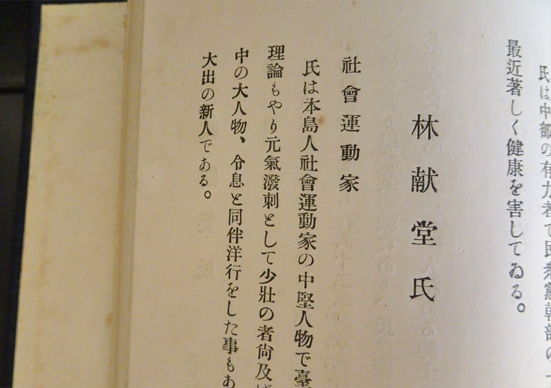 氏は中部の有力者で民衆黨幹部の一
最近著しく健康を害してゐる。
林献堂氏
社會運動家
氏は本島人社會運動家の中堅人物で臺
理論もやり元氣潑刺として少壯の者尙及ば
中の大人物、令息と同伴洋行をした事もあ
大出の新人である。